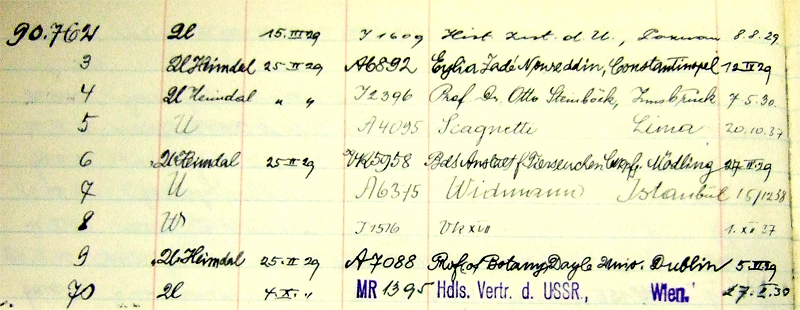 90.762 Ul 15.III 29 I 1609 Hist. Inst. d. U., 8.8.29.
3 Ul Heimdal 25-II 29 A6892 Zadé Noureddin, Constantinopel 12 IV 29
4 Ul Heimdal " " I2396 Prof. Dr. Otto Steinböck, Innsbruck 7 5.30.
5 U A4095 Scagnetti Lima 20.10.37
6 Ul Heimdal 25 II 29 VK5958 Bds. Anstalt f. Tierseuchen Mödling 27 29
7 U A6315 Widmann Istanbul
8 W I 1516 1. XII 27
9 Ul Heimdal 25. II 29 A7088 Prof. of Botany Univ. Dublin 5. 29
70 Ul 4.X. " MR 1395 Hdls. Vertr. d. USSR., Wien. 30